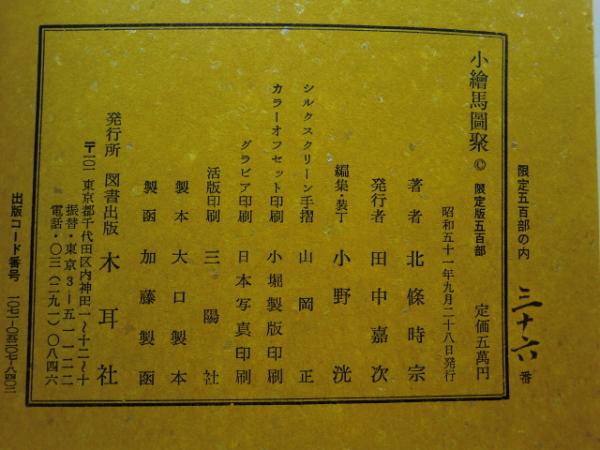 限定五百部の内 三十六 番
小繪馬圖聚 © 限定版五百部 定価五萬円
昭和五十一年九月二十八日発行
著者 北條時宗
発行者 田中嘉次
編集・装丁 小野洸
シルクスクリーン手摺 山岡正
カラーオフセット印刷 小堀製版印刷
グラビア印刷 日本写真印刷
活版印刷 三陽社
製本 大口製本
製函 加藤製函
発行所 図書出版 木耳社
〒一〇一 東京都千代田区内神田一〜十二〜十
振替・東京3ー五一一二二
電話・〇三(二九一)〇八四六
出版コード番号